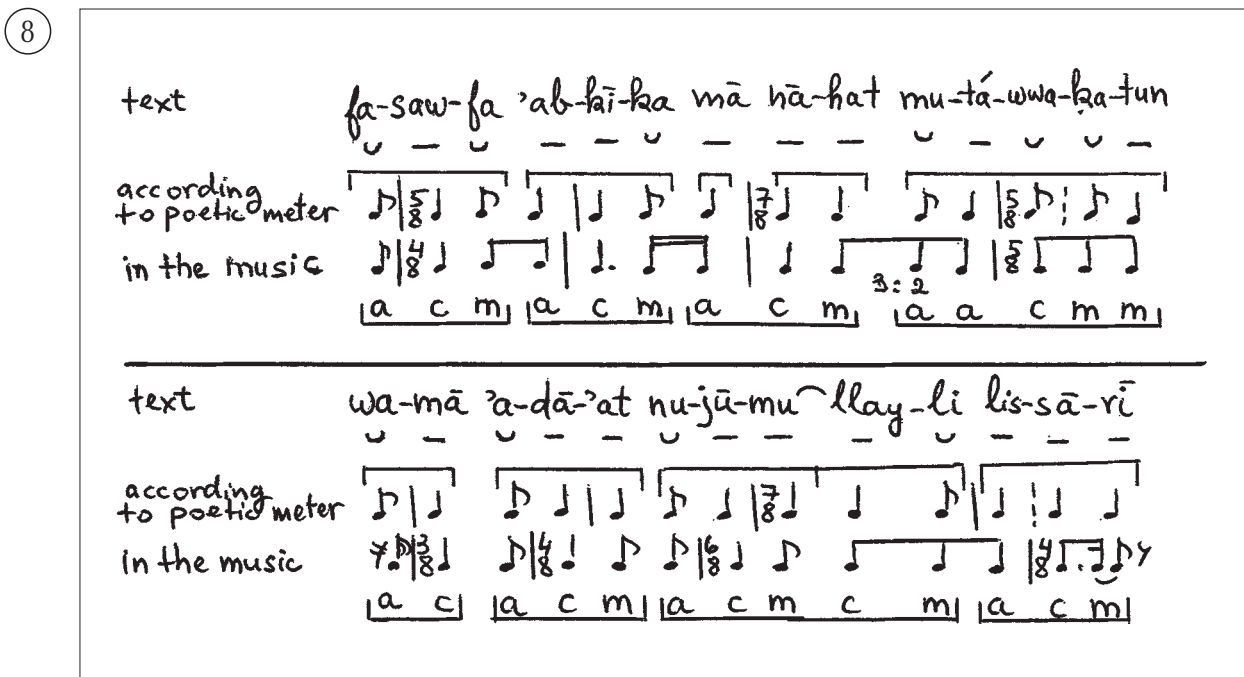 8
text fa-saw-fa ʾab-kī-ka mā nā-hat mu-tá-wwa-ḳa-tun
⏑ – ⏑ – – ⏑ – – – ⏑ – ⏑ ⏑ –
according
to poetic meter 5/8 7/8 5/8
in the music 4/8 5/8
3:2
a c m a c m a c m a a c m m
text wa-mā ʾa-dā-ʾat nu-jū-mu llay-li lis-sā-rī
⏑ – ⏑ – – ⏑ – – – ⏑ – – –
according
to poetic meter 7/8
in the music 3/8 4/8 6/8 4/8
a c a c m a c m c m a c m